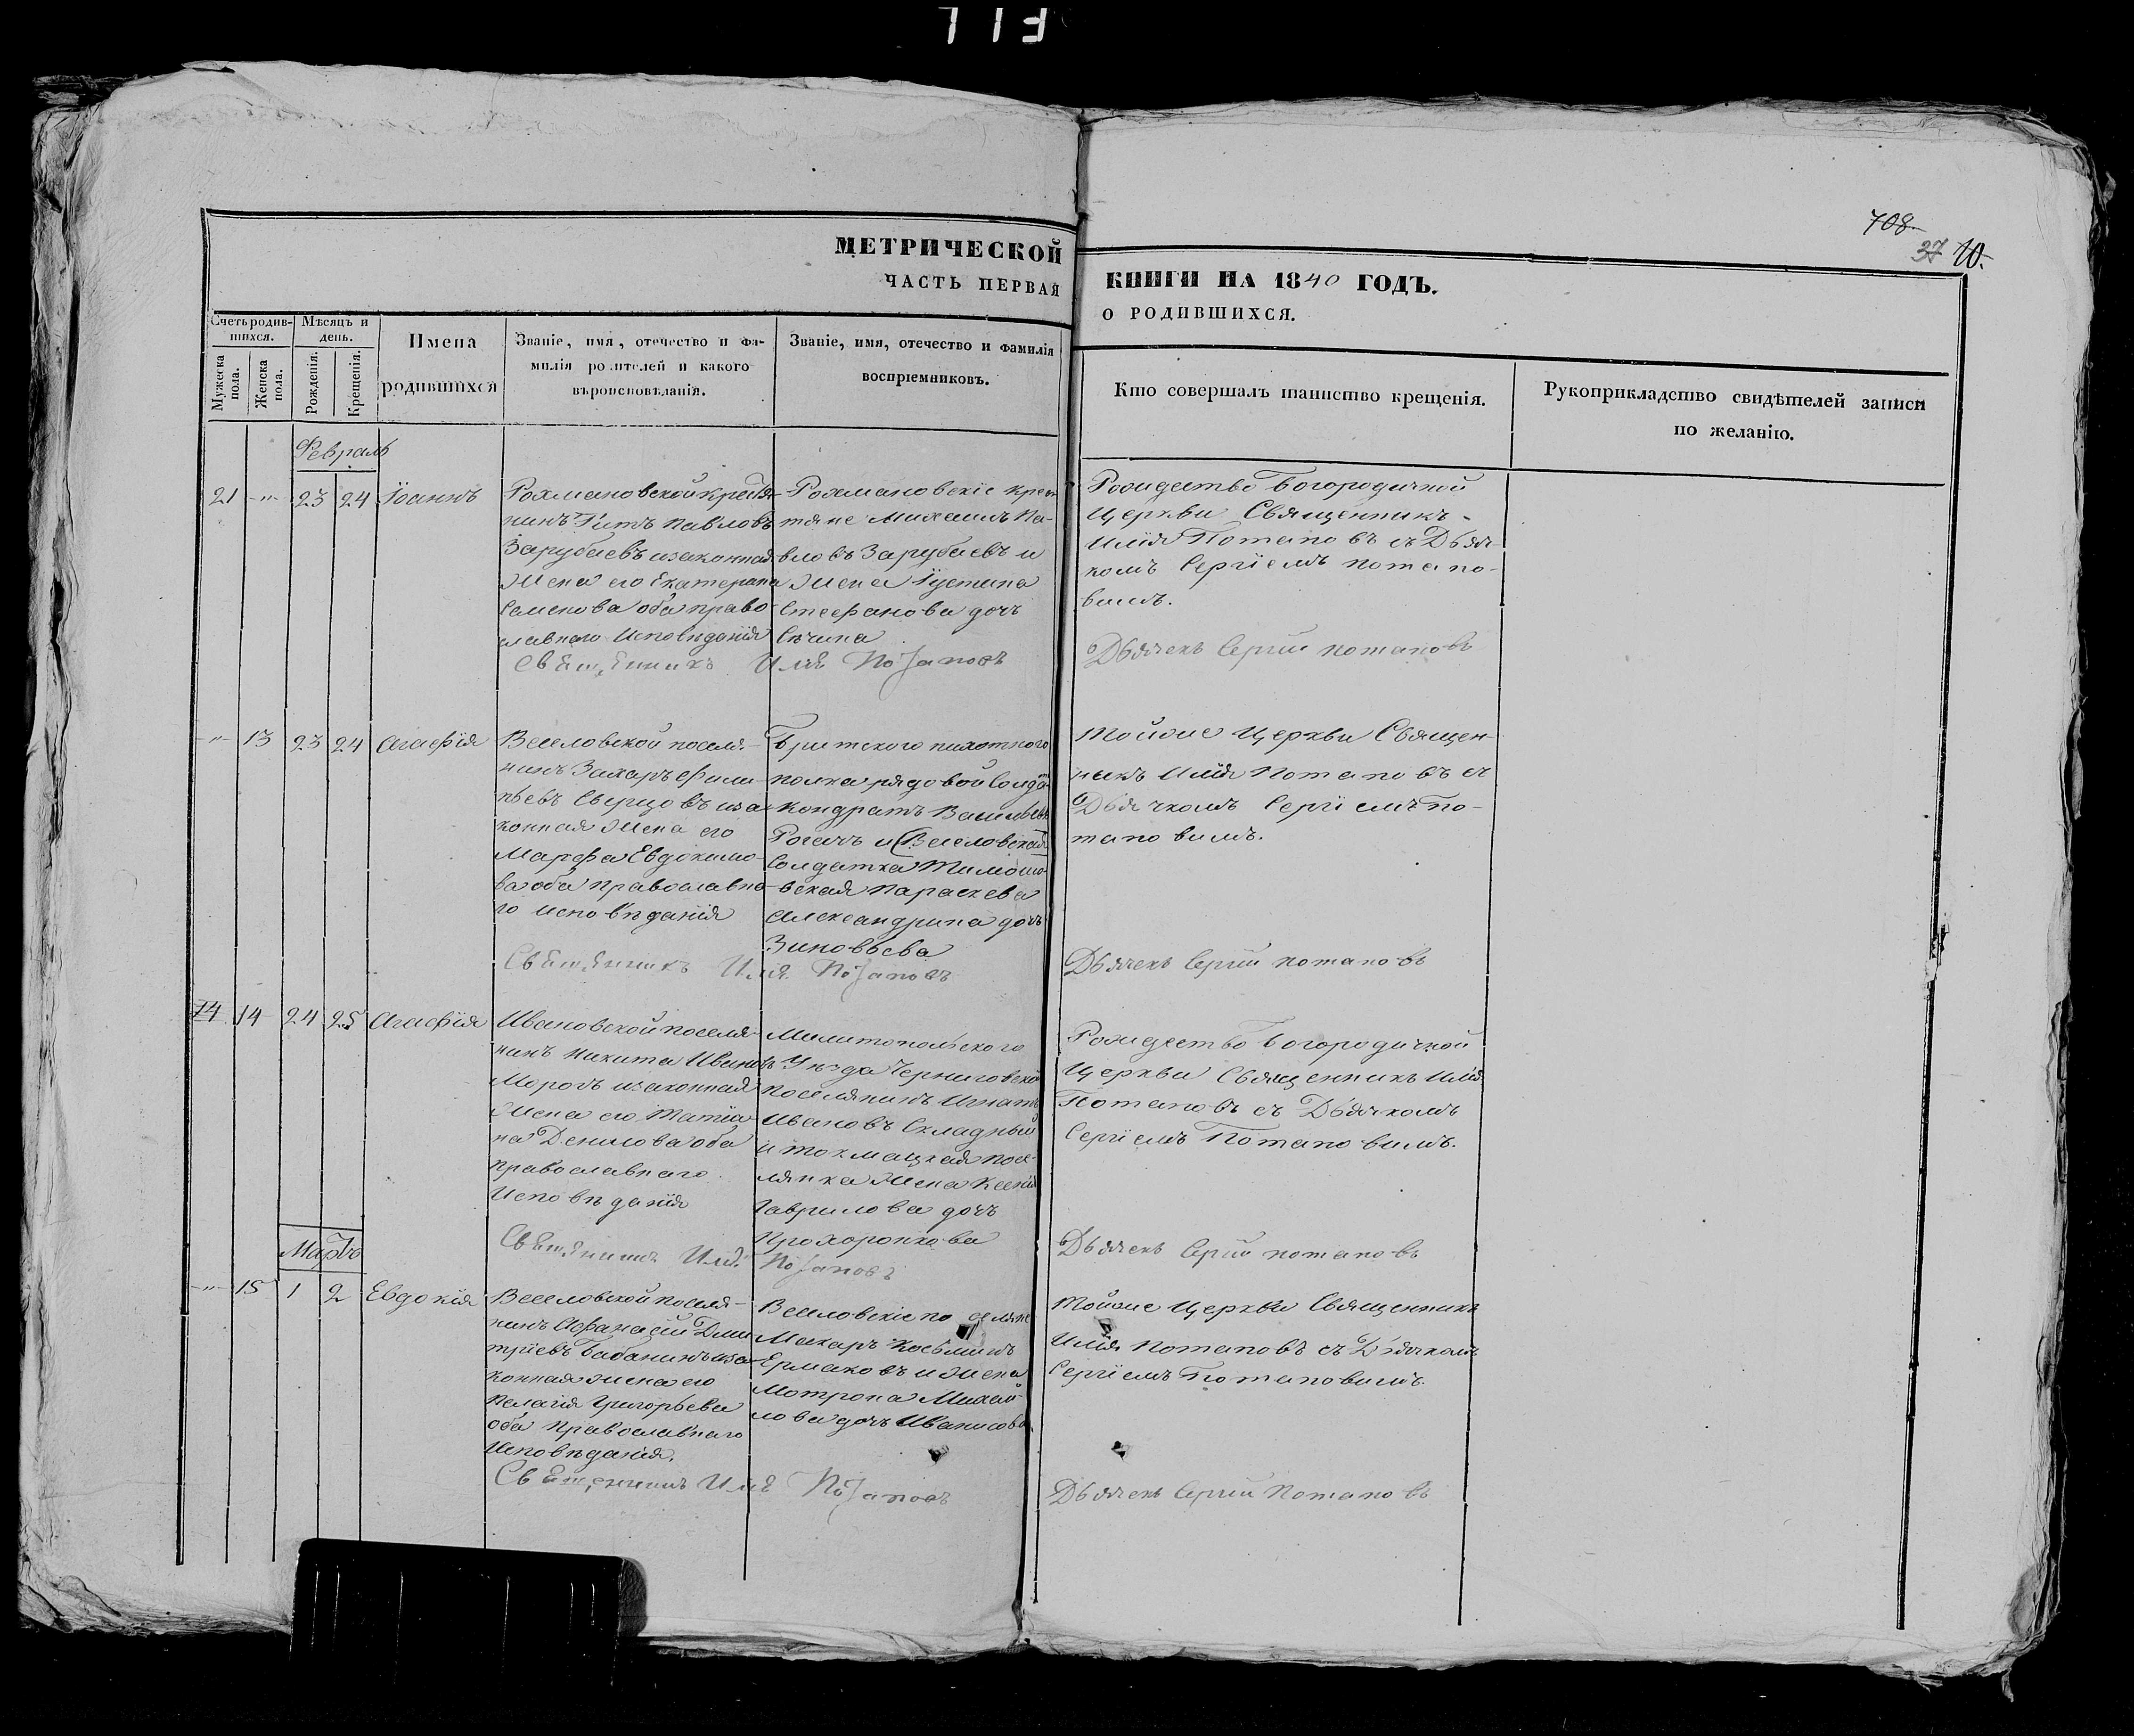 708.
37 10.
МЕТРИЧЕСКОЙ
ЧАСТЬ ПЕРВАЯ
КНИГИ НА 1840 ГОДЪ.
О РОДИВШИХСЯ.
Счетъ родившихся.
Мужеска пола.
Женска пола.
Мѣсяцъ и день.
Рожденія.
Крещенія.
Имена родившихся
Званіе, имя, отечество и фа-
милія родителей и какого
вѣроисповѣданія.
Званіе, имя, отечество и фамилія
воспріемниковъ.
Кто совершалъ таинство крещенія.
Рукоприкладство свидѣтелей записи
по желанію.
Февраль
21 -"- 23 24 Іоаннъ
Рохмановской крестья-
нинъ Титъ Павловъ
Зарубаевъ изаконная
жена его Екатерина
Семенова оба право-
славнаго Исповѣданія
Рохмановскіе крес-
тяне Михаилъ Па-
вловъ Зарубаевъ и
жена Іустина
Стефанова дочъ
Священникъ Илія Потаповъ
Рождество Богородичной
Церкви Священникъ
Илія Потаповъ съ Дьяч-
комъ Сергіемъ Потапо-
вимъ.
Дьячекъ Сергій Потаповъ
-"- 13 23 24 Агафія
Веселовской поселя-
нинъ Захаръ Фили-
пьевъ Сверцовъ иза-
конная жена его
Марфа Евдокимо-
ва оба Православна-
го исповѣданія
пихотного
полка рядовой Солдатъ
Кондратъ Васильевъ
Рогачъ и Веселовская
Солдатка Тимошо-
вская Параскева
Александрина дочъ
Зиновьева
Священникъ Илія Потаповъ
Тойже Церкви Священ-
никъ Илія Потаповъ съ
Дьячкомъ Сергіемъ По-
таповимъ.
Дьячекъ Сергій Потаповъ
14 14 24 25 Агафія
Ивановской поселя-
нинъ Никита Ивановъ
Морозъ изаконная
жена его Татіа-
на Денисова оба
Православнаго
Исповѣданія
Милитопольского
Уѣзда Черниговской
поселянинъ Игнатъ
Ивановъ Складный
и Токмацкая посе-
лянка жена Ксенія
Гаврилова дочъ
Прохоронкова
Священникъ Илія Потаповъ
Рождество Богородичной
Церкви Священникъ Илія
Потаповъ съ Дьячкомъ
Сергіемъ Потаповимъ.
Дьячекъ Сергій Потаповъ
Мартъ
-"- 15 1 2 Евдокія
Веселовской поселя-
нинъ Афанасій Дми-
тріевъ Бабанинъ иза-
конная жена его
Пелагія Григорьева
оба Православнаго
Исповѣданія.
Веселовскіе поселяне
Макаръ Косьминъ
Ермаковъ и жена
Мотрона Михай-
лова дочъ Иванисова
Священникъ Илія Потаповъ
Тойже Церкви Священникъ
Илія Потаповъ съ Дьячкомъ
Сергіемъ Потаповимъ.
Дьячекъ Сергій Потаповъ